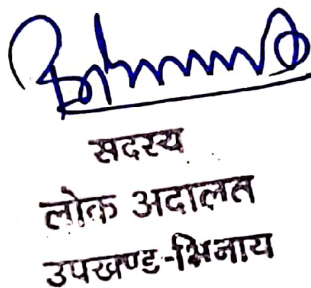 सदस्य
लोक अदालत
उपखण्ड-भिनाय